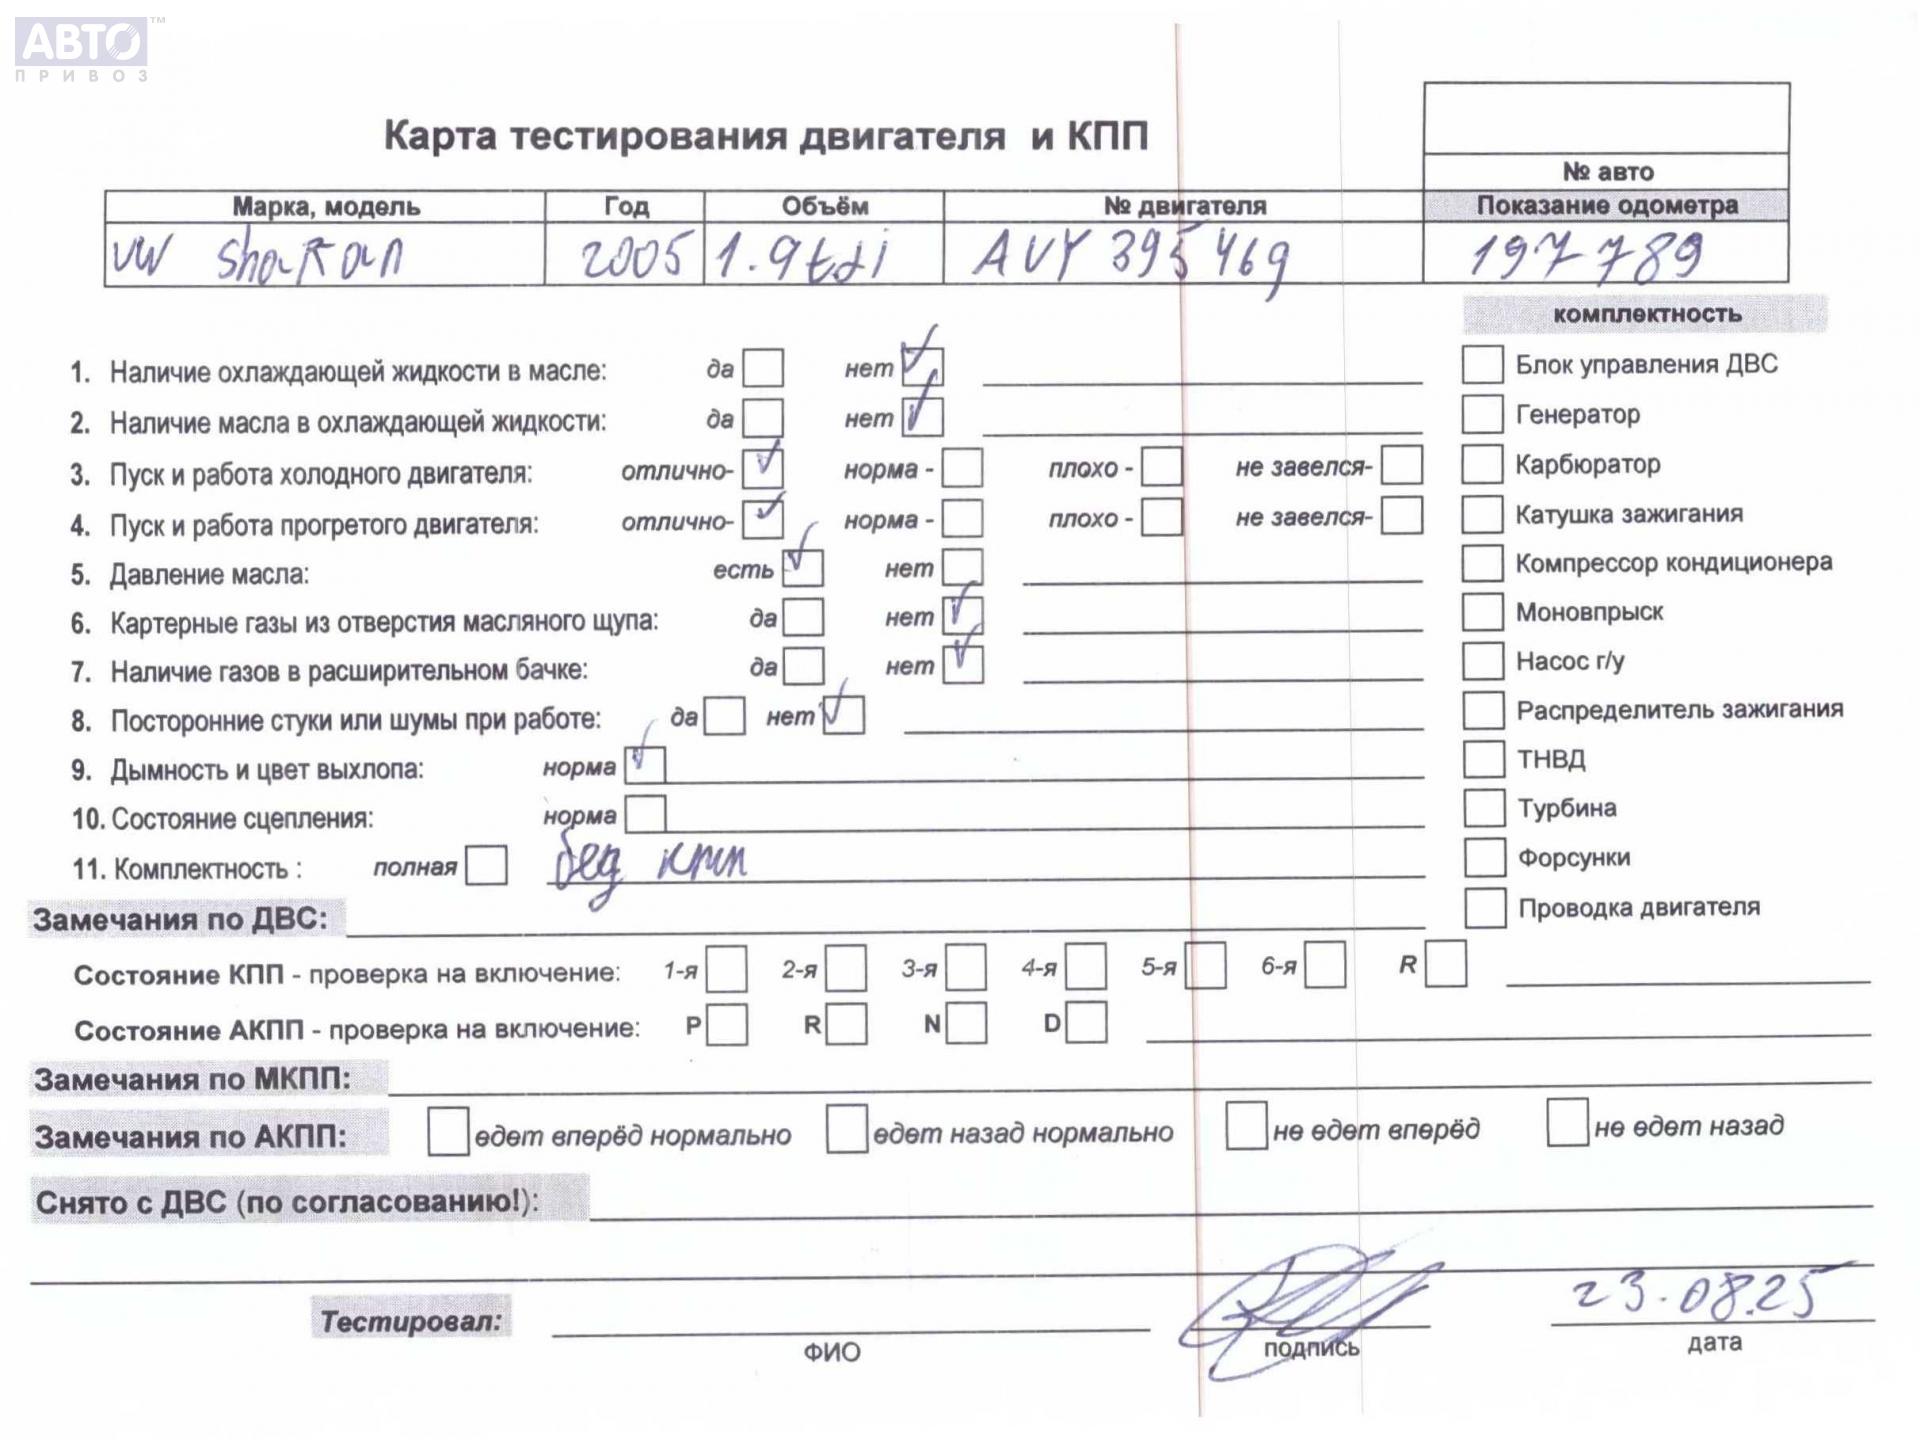 АВТО™
ПРИВОЗ
Карта тестирования двигателя и КПП
№ авто
Марка, модель Год Объём № двигателя Показание одометра
VW Sharan 2005 1.9tdi AUY 395469 197789
комплектность
1. Наличие охлаждающей жидкости в масле: да нет Блок управления ДВС
2. Наличие масла в охлаждающей жидкости: да нет Генератор
3. Пуск и работа холодного двигателя: отлично- норма - плохо - не завелся- Карбюратор
4. Пуск и работа прогретого двигателя: отлично- норма - плохо - не завелся- Катушка зажигания
5. Давление масла: есть нет Компрессор кондиционера
6. Картерные газы из отверстия масляного щупа: да нет Моновпрыск
7. Наличие газов в расширительном бачке: да нет Насос г/у
8. Посторонние стуки или шумы при работе: да нет Распределитель зажигания
9. Дымность и цвет выхлопа: норма ТНВД
10. Состояние сцепления: норма Турбина
11. Комплектность : полная без кпп Форсунки
Замечания по ДВС: Проводка двигателя
Состояние КПП - проверка на включение: 1-я 2-я 3-я 4-я 5-я 6-я R
Состояние АКПП - проверка на включение: P R N D
Замечания по МКПП:
Замечания по АКПП: едет вперёд нормально едет назад нормально не едет вперёд не едет назад
Снято с ДВС (по согласованию!):
Тестировал: 23.08.25
ФИО подпись дата